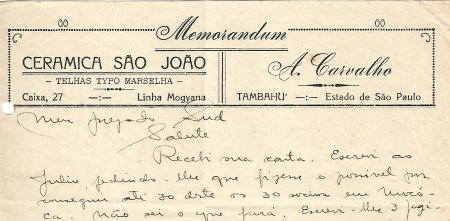 00 00
Memorandum
CERAMICA SÃO JOÃO
- TELHAS TYPO MARSELHA -
Caixa, 27 —:— Linha Mogyana
A. Carvalho
TAMBAHU' —:— Estado de São Paulo
Meu prezado Sud
Salute
Recebi sua carta. Escrevi ao
Julio, pedindo-lhe que fizesse o possivel por
conseguir até 30 dste os 30 socios em
ca. Não sei o que fará. Escrevi-lhe 3